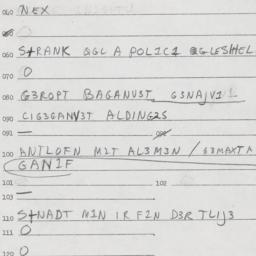 040 NEX
050 0
060 STRANK QGL A POL2C1 QGLESHEL
0
070
080 G3ROPT BAGANV3T G3NAJV1
090 C1G3GANV3T ALDING2S
091 — 092
100 ANTLOFN M2T AL3M3N / G3MAXTA
GAN1F
101 102
103 —
110 STNADT M1N 1R F2N D3R TL1J3
111 0
120 0